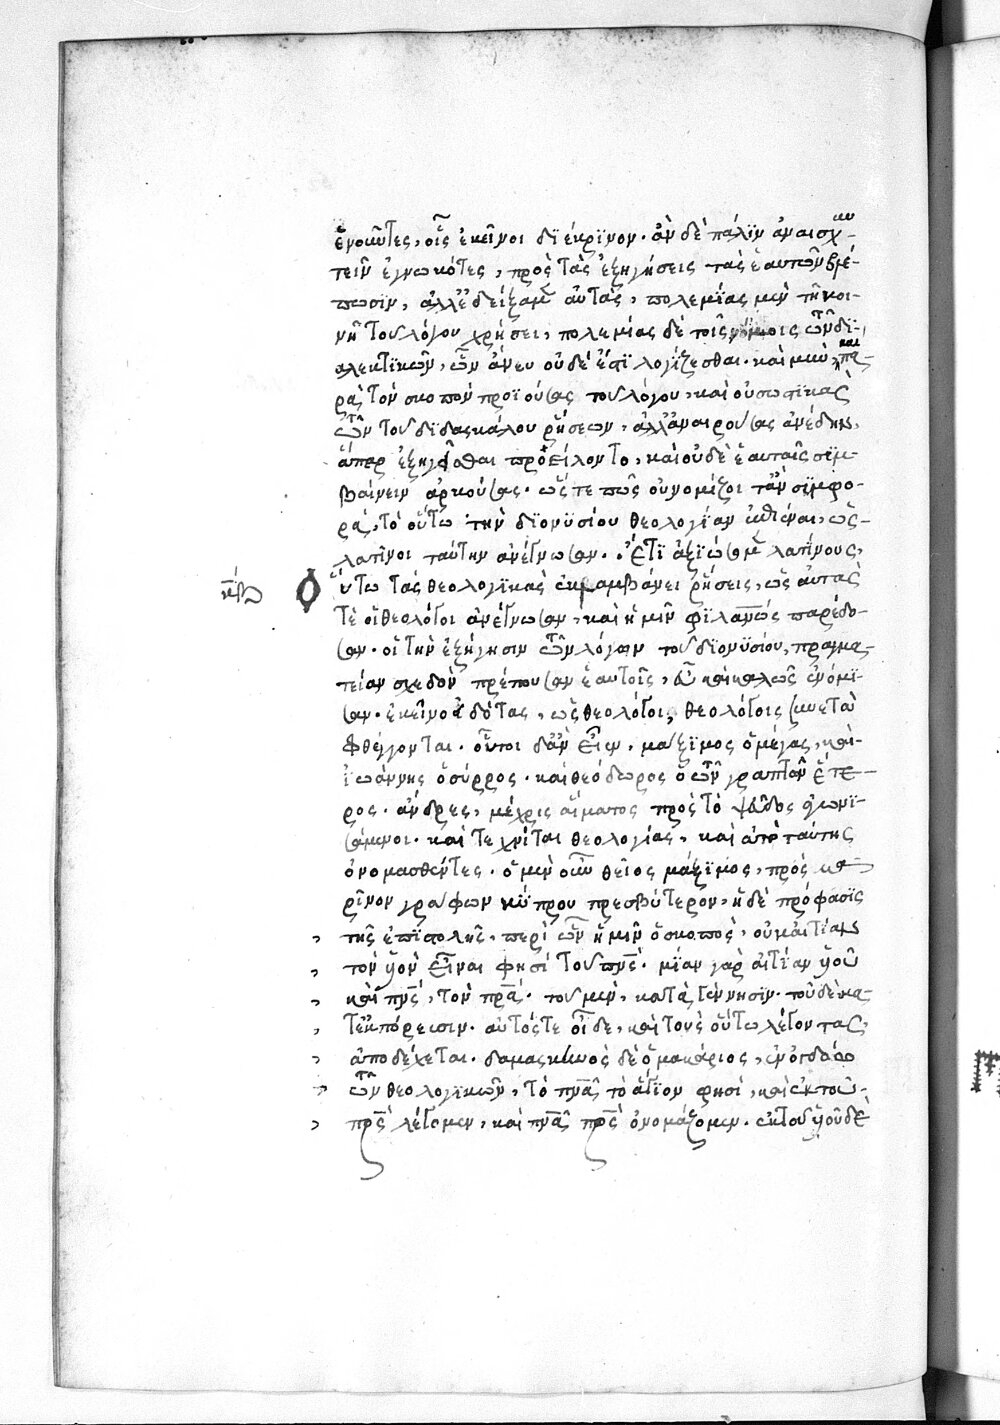 ἑνοῦντες, οἷς ἐκεῖνοι διέκρινον. ἂν δὲ πάλιν ἀναισχυν-
τεῖν ἐγνωκότες, πρὸς τὰς ἐξηγήσεις τὰς ἑαυτῶν βλέ-
πωσιν, ἀλλ' ἐδείξαμεν αὐτὰς, πολεμίας μὲν τῇ κοι-
νῇ τοῦ λόγου χρήσει, πολεμίας δὲ τοῖς νόμοις τῶν δι-
αλεκτικῶν, ὧν ἄνευ οὐδὲ ἔστι λογίζεσθαι. καὶ μὴν καὶ πα-
ρὰ τὸν σκοπὸν προϊούσας τοῦ λόγου, καὶ οὐ συστατικὰς
τῶν τοῦ διδασκάλου ῥήσεων, ἀλλ' ἀναιρούσας ἀνέδην,
ἅπερ ἐξηγεῖσθαι προείλοντο, καὶ οὐδὲ ἑαυταῖς συμ-
βαίνειν ἀρκούσας. ὥστε πῶς οὐ νομίζοιτ' ἂν συμφο-
ρὰ, τὸ οὕτω τὴν διονυσίου θεολογίαν ἐκθεῖναι, ὡς
λατῖνοι ταύτην ἀνέγνωσαν. ἔτι ἀξιώσαμεν λατίνους,
οὕτω τὰς θεολογικὰς ἐκλαμβάνειν ῥήσεις, ὡς αὐτάς
τε οἱ θεολόγοι ἀνέγνωσαν, καὶ ἡμῖν φιλανθρώπως παρέδο-
σαν. οἳ τὴν ἐξήγησιν τῶν λόγων τοῦ διονυσίου, πραγμα-
τείαν σχεδὸν πρέπουσαν ἑαυτοῖς, εὖ καὶ καλῶς ἐνόμι-
σαν. ἐκεῖνο εἰδότας, ὡς θεολόγοις θεολόγοις συνετὰ
φθέγγονται. οὗτοι δ' ἂν εἶεν, μάξιμος ὁ μέγας, καὶ
ἰωάννης ὁ σύρρος. καὶ θεόδωρος ὁ τῶν γραπτῶν ἕτε-
ρος. ἄνδρες, μέχρις αἵματος πρὸς τὸ ψεῦδος ἠγωνι-
σάμενοι. καὶ τεχνῖται θεολογίας, καὶ ἀπὸ ταύτης
ὀνομασθέντες. ὁ μὲν οὖν θεῖος μάξιμος, πρὸς μα-
ρῖνον γράφων κύπρου πρεσβύτερον, ἡ δὲ πρόφασις
τῆς ἐπιστολῆς, περὶ ὧν ἡμῖν ὁ σκοπὸς, οὐκ αἰτίαν
τὸν υἱὸν εἶναι φησὶ τοῦ πνς. μίαν γὰρ αἰτίαν υἱοῦ
καὶ πνς, τὸν πρα. τοῦ μὲν, κατὰ γέννησιν. τοῦ δὲ κα-
τ' ἐκπόρευσιν. αὐτός τε οἶδε, καὶ τοὺς οὕτω λέγοντας,
ἀποδέχεται. δαμασκηνὸς δὲ ὁ μακάριος, ἐν ὀγδόῳ
τῶν θεολογικῶν, τὸ πνα τὸ ἅγιον φησὶ, καὶ ἐκ τοῦ
πρς λέγομεν, καὶ πνα πρς ὀνομάζομεν. ἐκ τοῦ υἱοῦ δὲ